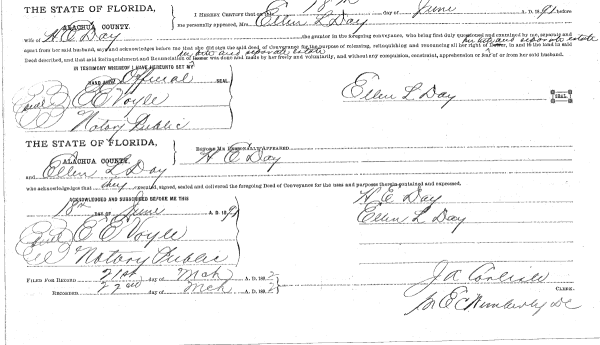 THE STATE OF FLORIDA,
ALACHUA COUNTY.
I HEREBY CERTIFY that on this 18th day of June A. D. 1891 before
me personally appeared, Mrs. Ellen L Day
wife of H. E. Day the grantor in the foregoing conveyance, who being first duly questioned and examined by me separate and
apart from her said husband, says and acknowledges before me that she did sign the said deed of Conveyance for the purpose of releasing, relinquishing and renouncing all her right of Dower, in and to the land in said
interest and separate estate
Deed described, and that said Relinquishment and Renunciation of Dower was done and made by her freely and voluntarily, and without any compulsion, constraint, apprehension or fear of or from her said husband.
interest and separate estate
IN TESTIMONY WHEREOF I HAVE HEREUNTO SET MY
HAND AND Official SEAL
Seal E E Voyle
Notary Public
Ellen L Day
SEAL
THE STATE OF FLORIDA,
ALACHUA COUNTY.
BEFORE ME PERSONALLY APPEARED H E Day
and Ellen L Day
who acknowledges that they executed, signed, sealed and delivered the foregoing Deed of Conveyance for the uses and purposes therein contained and expressed.
ACKNOWLEDGED AND SUBSCRIBED BEFORE ME THIS
18th DAY OF June A. D. 1891
Seal E E Voyle
Notary Public
H. E. Day
Ellen L Day
FILED FOR RECORD 21st day of Mch A. D. 1892
RECORDED 22nd day of Mch A. D. 1892
J A Carlisle
CLERK.
pr E C Wimberly DC